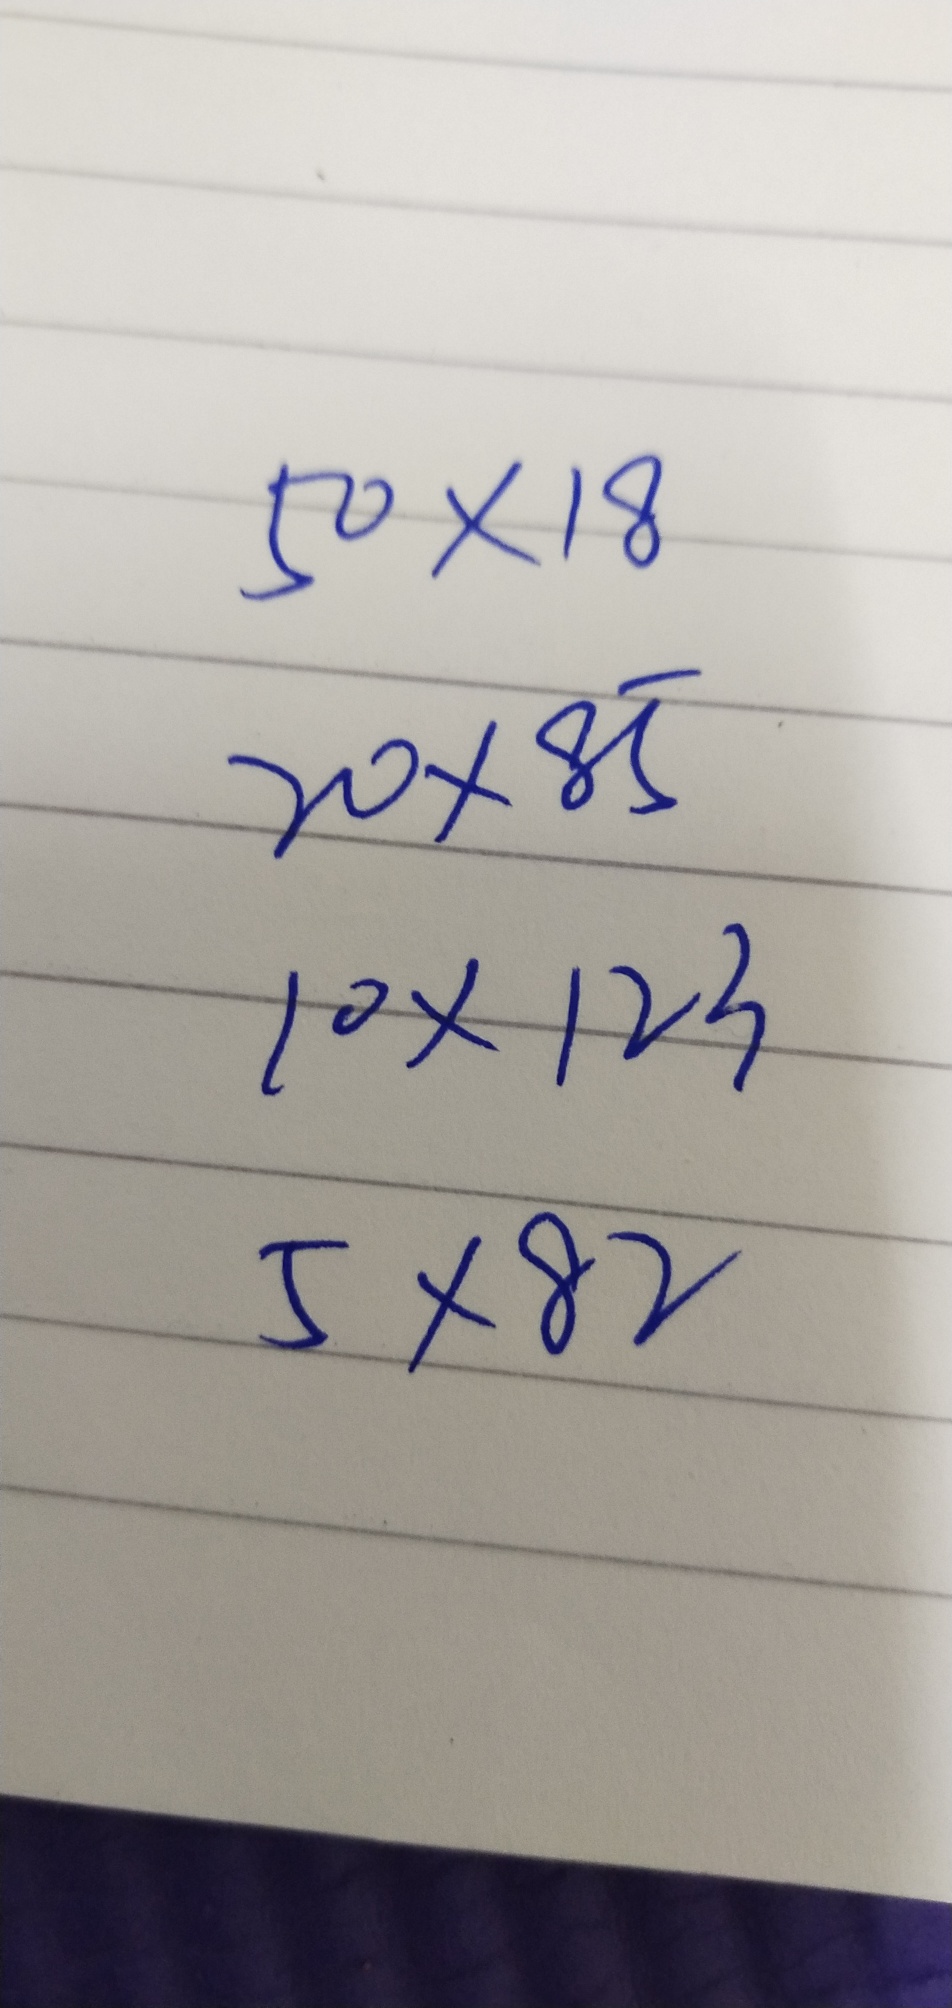 50×18
20×85
10×123
5×82